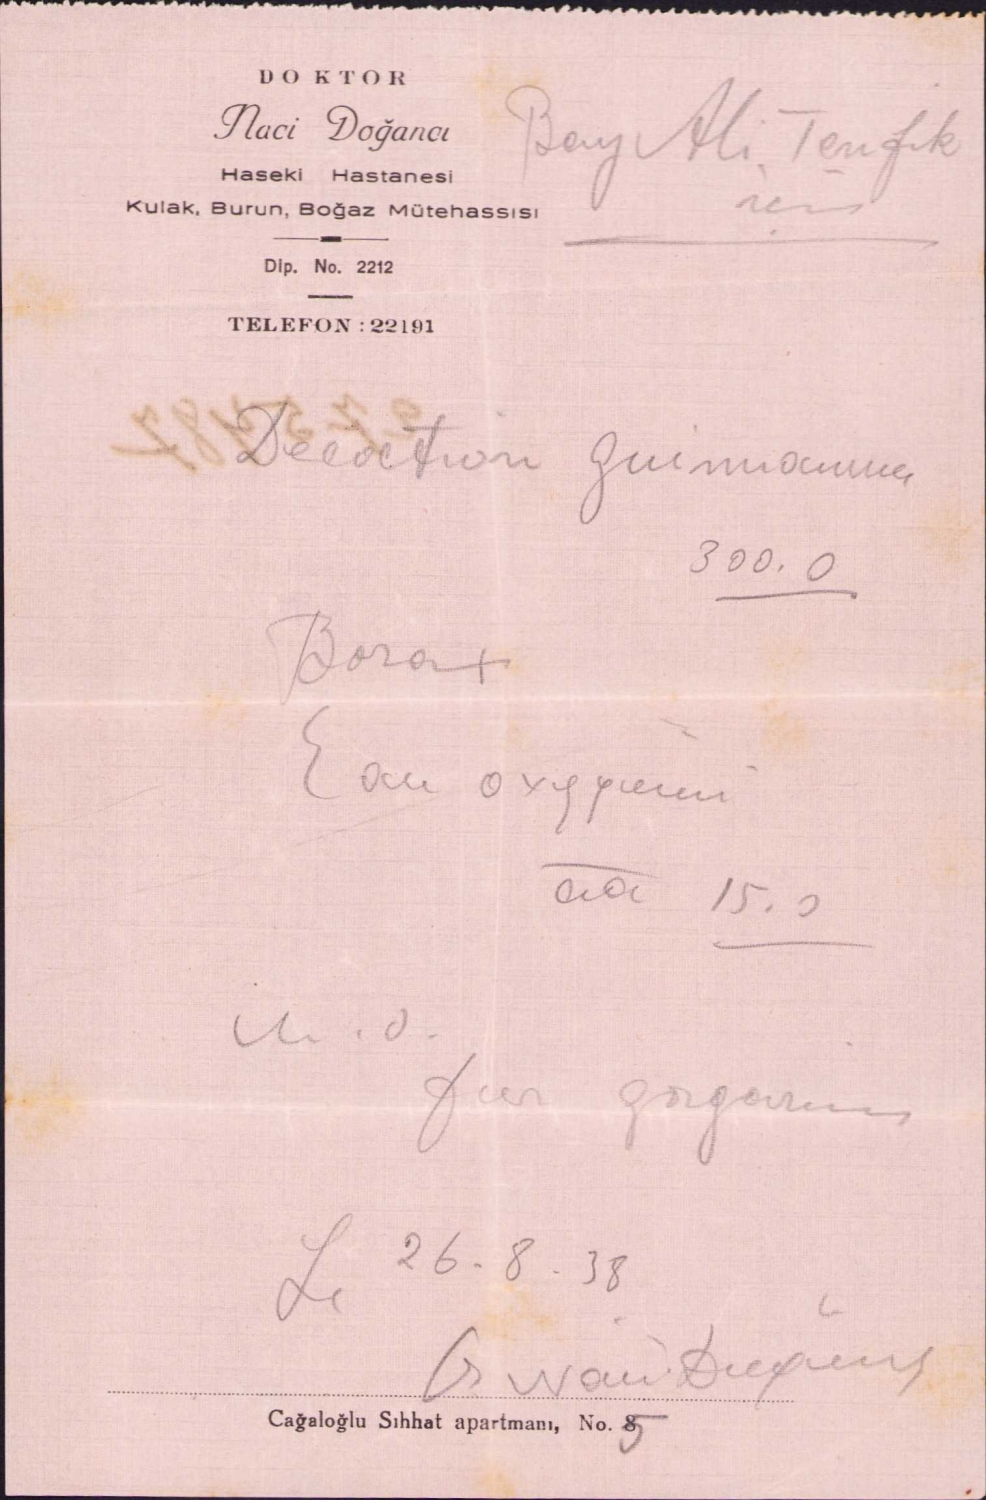 DOKTOR
Naci Doğancı
Haseki Hastanesi
Kulak, Burun, Boğaz Mütehassısı
Dip. No. 2212
TELEFON : 22191
Bay Ali Tevfik
için
Decoction guimauve
300.0
Borax
Eau oxygéné
aa 15.0
M. d.
pour gargarism
Le 26-8-38
Dr Naci Doğancı
Cağaloğlu Sıhhat apartmanı, No. 5